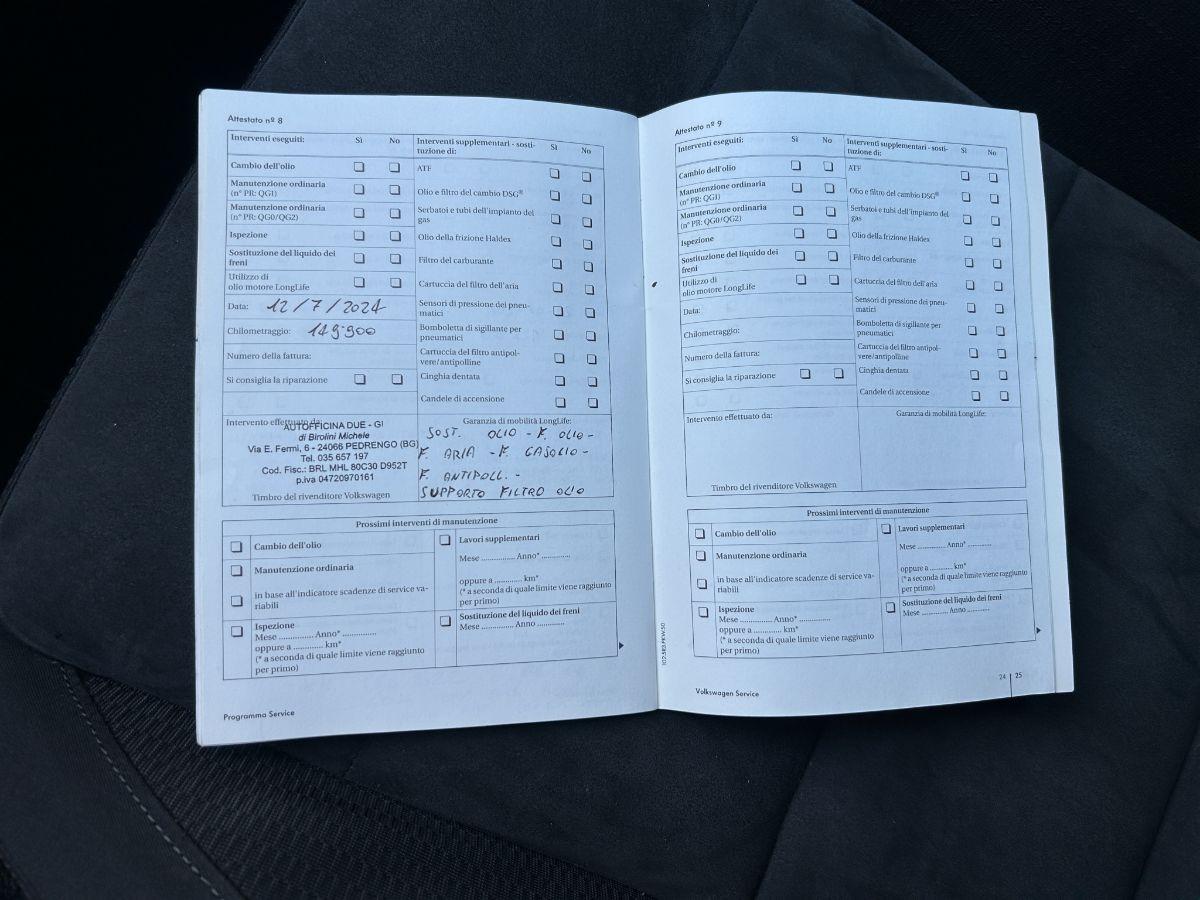 Attestato nº 8
Interventi eseguiti: Sì No
Cambio dell'olio
Manutenzione ordinaria
(nº PR: QG1)
Manutenzione ordinaria
(nº PR: QG0/QG2)
Ispezione
Sostituzione del liquido dei
freni
Utilizzo di
olio motore LongLife
Data: 12/7/2024
Chilometraggio: 149.900
Numero della fattura:
Si consiglia la riparazione
Interventi supplementari - sosti-
tuzione di: Sì No
ATF
Olio e filtro del cambio DSG®
Serbatoi e tubi dell'impianto del
gas
Olio della frizione Haldex
Filtro del carburante
Cartuccia del filtro dell'aria
Sensori di pressione dei pneu-
matici
Bomboletta di sigillante per
pneumatici
Cartuccia del filtro antipol-
vere/antipolline
Cinghia dentata
Candele di accensione
Intervento effettuato da:
AUTOFFICINA DUE - GI
di Birolini Michele
Via E. Fermi, 6 - 24066 PEDRENGO (BG)
Tel. 035 657 197
Cod. Fisc.: BRL MHL 80C30 D952T
p.iva 04720970161
Timbro del rivenditore Volkswagen
Garanzia di mobilità LongLife:
SOST. OLIO - F. OLIO -
F. ARIA - F. GASOLIO -
F. ANTIPOLL. -
SUPPORTO FILTRO OLIO
Prossimi interventi di manutenzione
Cambio dell'olio
Manutenzione ordinaria
in base all'indicatore scadenze di service va-
riabili
Ispezione
Mese .............. Anno* ..............
oppure a .............. km*
(* a seconda di quale limite viene raggiunto
per primo)
Lavori supplementari
Mese ............ Anno* ............
oppure a ............ km*
(* a seconda di quale limite viene raggiunto
per primo)
Sostituzione del liquido dei freni
Mese ............ Anno ............
Programma Service
Attestato nº 9
Interventi eseguiti: Sì No
Cambio dell'olio
Manutenzione ordinaria
(nº PR: QG1)
Manutenzione ordinaria
(nº PR: QG0/QG2)
Ispezione
Sostituzione del liquido dei
freni
Utilizzo di
olio motore LongLife
Data:
Chilometraggio:
Numero della fattura:
Si consiglia la riparazione
Interventi supplementari - sosti-
tuzione di: Sì No
ATF
Olio e filtro del cambio DSG®
Serbatoi e tubi dell'impianto del
gas
Olio della frizione Haldex
Filtro del carburante
Cartuccia del filtro dell'aria
Sensori di pressione dei pneu-
matici
Bomboletta di sigillante per
pneumatici
Cartuccia del filtro antipol-
vere/antipolline
Cinghia dentata
Candele di accensione
Intervento effettuato da:
Timbro del rivenditore Volkswagen
Garanzia di mobilità LongLife:
Prossimi interventi di manutenzione
Cambio dell'olio
Manutenzione ordinaria
in base all'indicatore scadenze di service va-
riabili
Ispezione
Mese .............. Anno* ..............
oppure a ............ km*
(* a seconda di quale limite viene raggiunto
per primo)
Lavori supplementari
Mese ............ Anno* ............
oppure a ............ km*
(* a seconda di quale limite viene raggiunto
per primo)
Sostituzione del liquido dei freni
Mese ............ Anno ............
Volkswagen Service
24 | 25